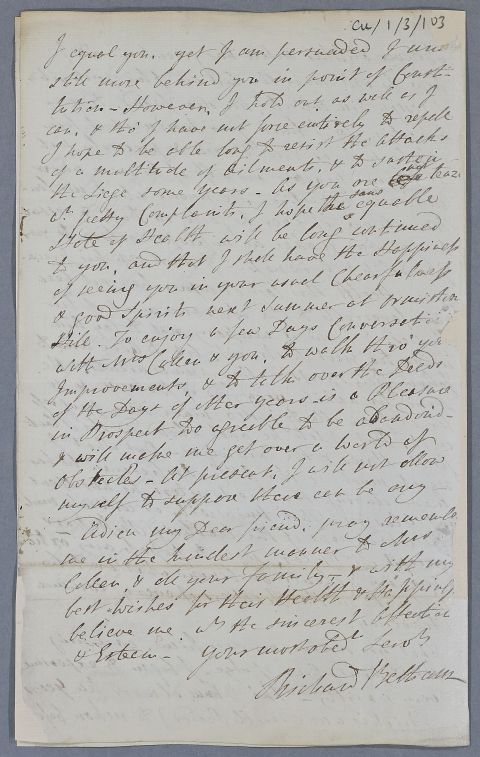 CU/1/3/103
I equal you, yet I am persuaded I am
still more behind you in point of Consti-
tution – However, I hold out as well as I
can, & tho' I have not force entirely to repell
I hope to be able long to resist the attacks
of a multitude of Ailments, & to sustain
the Siege some Years – As you are
wt. petty Complaints, I hope the same equable
State of Health will be long continued
to you, and that I shall have the Happiness
of seeing you in your usual Chearfulness
& good Spirits next Summer at Ormiston
Hill. To enjoy a few Days Conversation
with Mrs Cullen & you, to walk thro' your
Improvements, & to talk over the Deeds
of the Days of other Years – is a Pleasure
in Prospect too agreable to be abandond –
& will make me get over a World of
Obstacles – At present, I will not allow
myself to suppose there can be any –
– Adieu my Dear friend, pray remember
me in the kindest manner to Mrs
Cullen & all your family, & with my
best wishes for their Health & Happiness
believe me wt. the sincerest Affection
& Esteem – your most obt. Servt.
Richard Betham